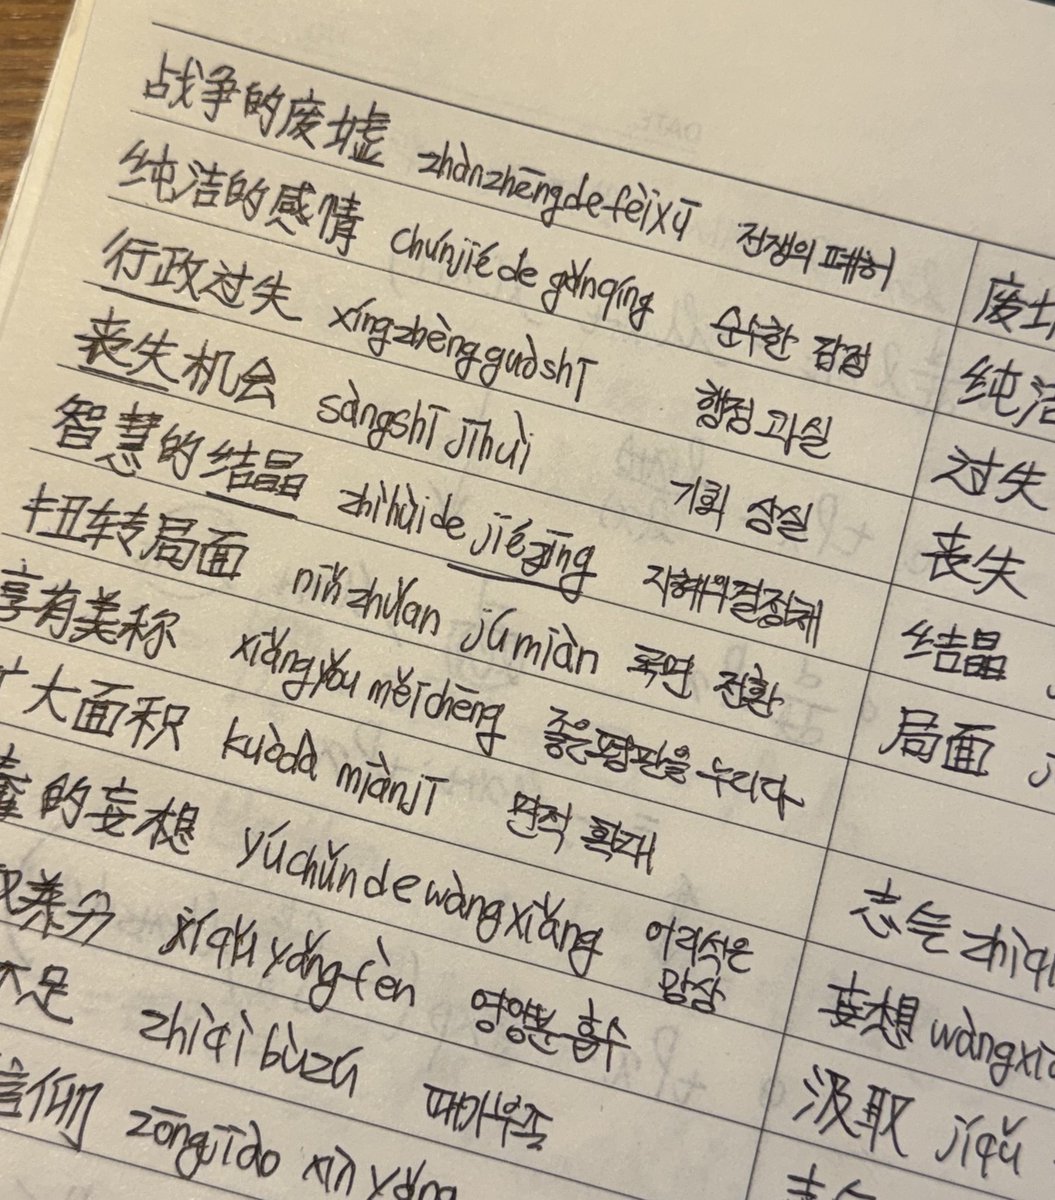 战争的废墟 zhànzhēngdefèixū 전쟁의 폐허
纯洁的感情 chúnjiéde gǎnqíng 순수한 감정
行政过失 xíngzhèngguòshī 행정 과실
丧失机会 sàngshī jīhuì 기회 상실
智慧的结晶 zhìhuìde jiéjīng 지혜의결정체
扭转局面 niǔzhuǎn júmiàn 국면 전환
享有美称 xiǎngyǒu měichēng 좋은평판을 누리다
扩大面积 kuòdà miànjī 면적 확대
蠢的妄想 yúchǔndewàngxiǎng 어리석은 망상
取养分 jíqǔ yǎngfèn 영양분흡수
不足 zhìqì bùzú 패기부족
信仰 zōngjiào xìnyǎng
纯洁
过失
丧失
结晶
局面
志气 zhìq
妄想 wàngxiǎ
汲取 jíqǔ